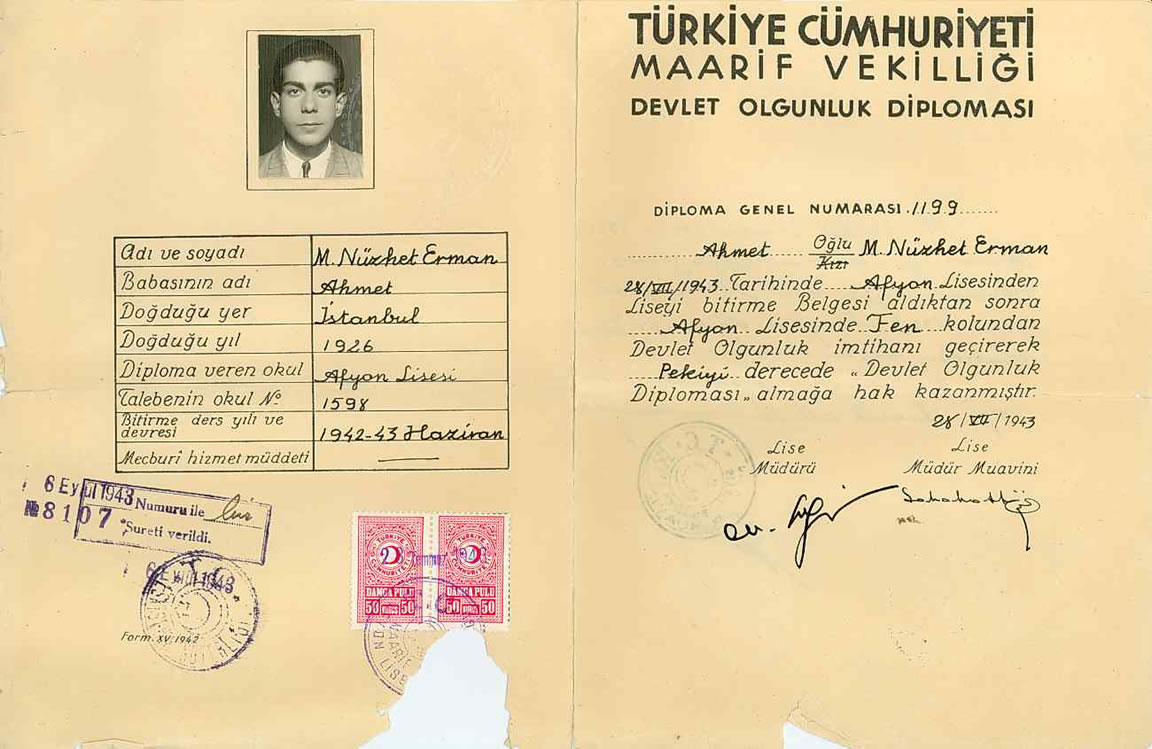 Adı ve soyadı M. Nüzhet Erman
Babasının adı Ahmet
Doğduğu yer İstanbul
Doğduğu yıl 1926
Diploma veren okul Afyon Lisesi
Talebenin okul No 1598
Bitirme ders yılı ve devresi 1942-43 Haziran
Mecburî hizmet müddeti
6 Eylül 1943
№ 8107
Numuru ile bir
Sureti verildi.
6 Eylül 1943
Form. XV. 1942
TÜRKİYE CÜMHURİYETİ TÜRKİYE CÜMHURİYETİ
DAMGA PULU DAMGA PULU
50 KURUŞ 50 50 KURUŞ 50
TÜRKİYE CÜMHURİYETİ
MAARİF VEKİLLİĞİ
DEVLET OLGUNLUK DİPLOMASI
DİPLOMA GENEL NUMARASI 1199
Ahmet Oğlu Kızı M. Nüzhet Erman
28/VII/1943 Tarihinde Afyon Lisesinden
Liseyi bitirme Belgesi aldıktan sonra
Afyon Lisesinde Fen kolundan
Devlet Olgunluk imtihanı geçirerek
Pekiyi derecede „Devlet Olgunluk
Diploması„ almağa hak kazanmıştır.
28/VII/1943
Lise Lise
Müdürü Müdür Muavini